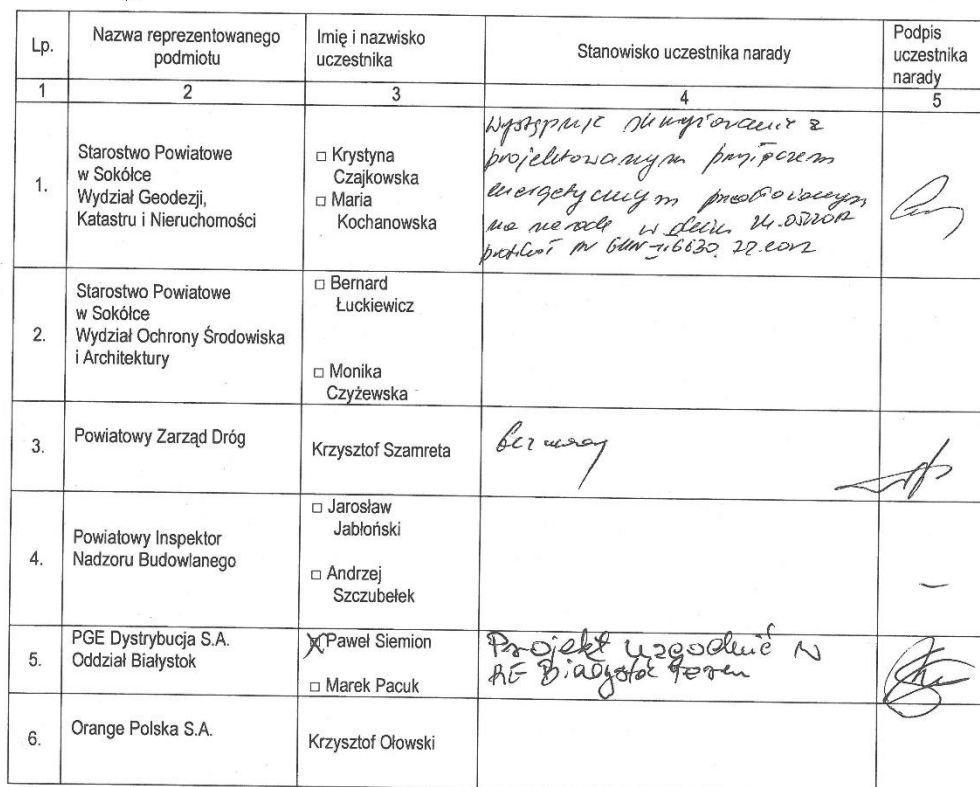 Lp.
Nazwa reprezentowanego
podmiotu
Imię i nazwisko
uczestnika
Stanowisko uczestnika narady
Podpis
uczestnika
narady
1
2
3
4
5
1.
Starostwo Powiatowe
w Sokółce
Wydział Geodezji,
Katastru i Nieruchomości
□ Krystyna
Czajkowska
□ Maria
Kochanowska
Występuje skrzyżowanie z
projektowanym przyłączem
energetycznym
na narade w dniu
2.
Starostwo Powiatowe
w Sokółce
Wydział Ochrony Środowiska
i Architektury
□ Bernard
Łuckiewicz
□ Monika
Czyżewska
3.
Powiatowy Zarząd Dróg
Krzysztof Szamreta
bez uwag
4.
Powiatowy Inspektor
Nadzoru Budowlanego
□ Jarosław
Jabłoński
□ Andrzej
Szczubełek
5.
PGE Dystrybucja S.A.
Oddział Białystok
Paweł Siemion
□ Marek Pacuk
Projekt uzgodnić w
RE Białystok Teren
6.
Orange Polska S.A.
Krzysztof Ołowski